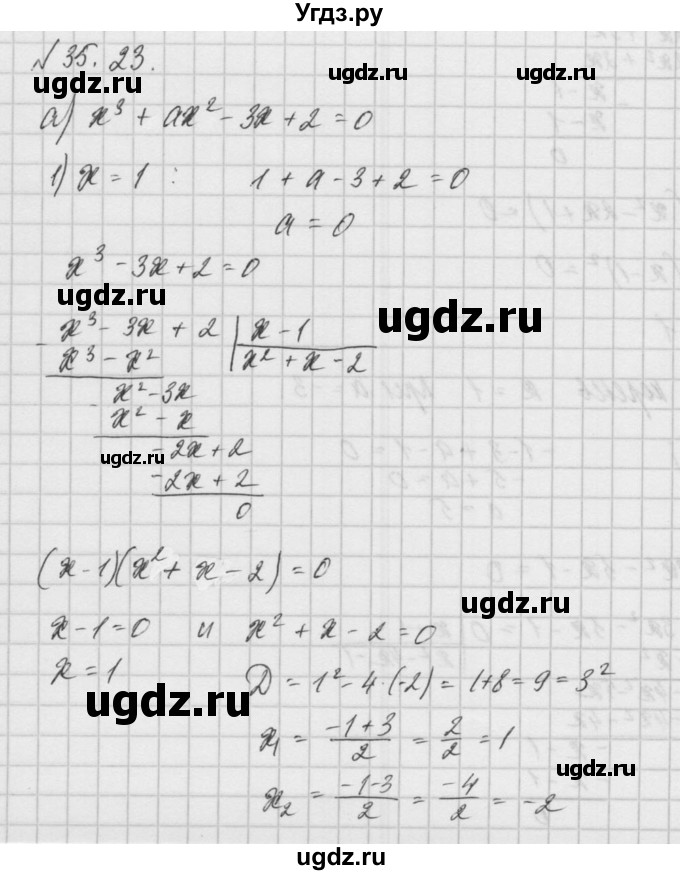 Угдз.ру
№ 35.23.
ugdz.ru ugdz.ru ugdz.ru
а) x³ + ax² - 3x + 2 = 0
1) x = 1 : 1 + a - 3 + 2 = 0
a = 0
x³ - 3x + 2 = 0
ugdz.ru ugdz.ru
- x³ - 3x + 2 | x - 1
x³ - x² | x² + x - 2
- x² - 3x
x² - x
ugdz.ru - 2x + 2
- 2x + 2
0
(x - 1)(x² + x - 2) = 0
ugdz.ru
x - 1 = 0 и x² + x - 2 = 0
x = 1 D = 1² - 4·(-2) = 1 + 8 = 9 = 3²
ugdz.ru
x₁ = (-1+3)/2 = 2/2 = 1
ugdz.ru
x₂ = (-1-3)/2 = -4/2 = -2
ugdz.ru